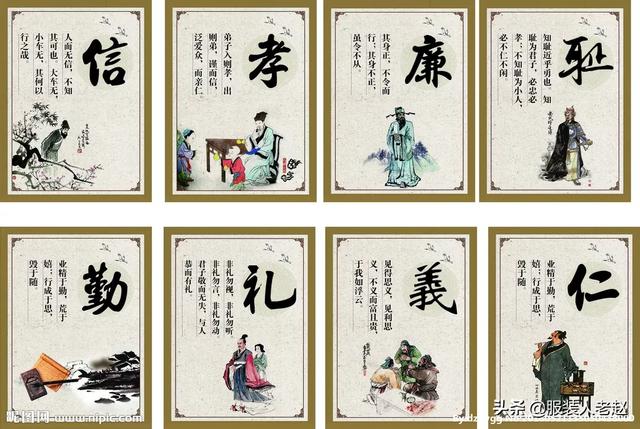 信
人而无信，不知
其可也。大车无，
小车无，其何以
行之哉
孝
弟子入则孝，出
则弟，谨而信，
泛爱众，而亲仁
廉
其身正，不令而
行；其身不正，
虽令不从。
耻
知耻近乎勇也。知
耻为君子，必忠必
孝；不知耻为小人，
必不仁不闲。
勤
业精于勤，荒于
嬉；行成于思，
毁于随
礼
非礼勿视，非礼勿听
非礼勿言，非礼勿动，
君子敬而无失，与人
恭而有礼
義
见得思义，见利思
义，不义而富且贵，
于我如浮云。
仁
业精于勤，荒于
嬉；行成于思，
毁于随
昵图网 www.nipic.com
头条 @服装人老赵